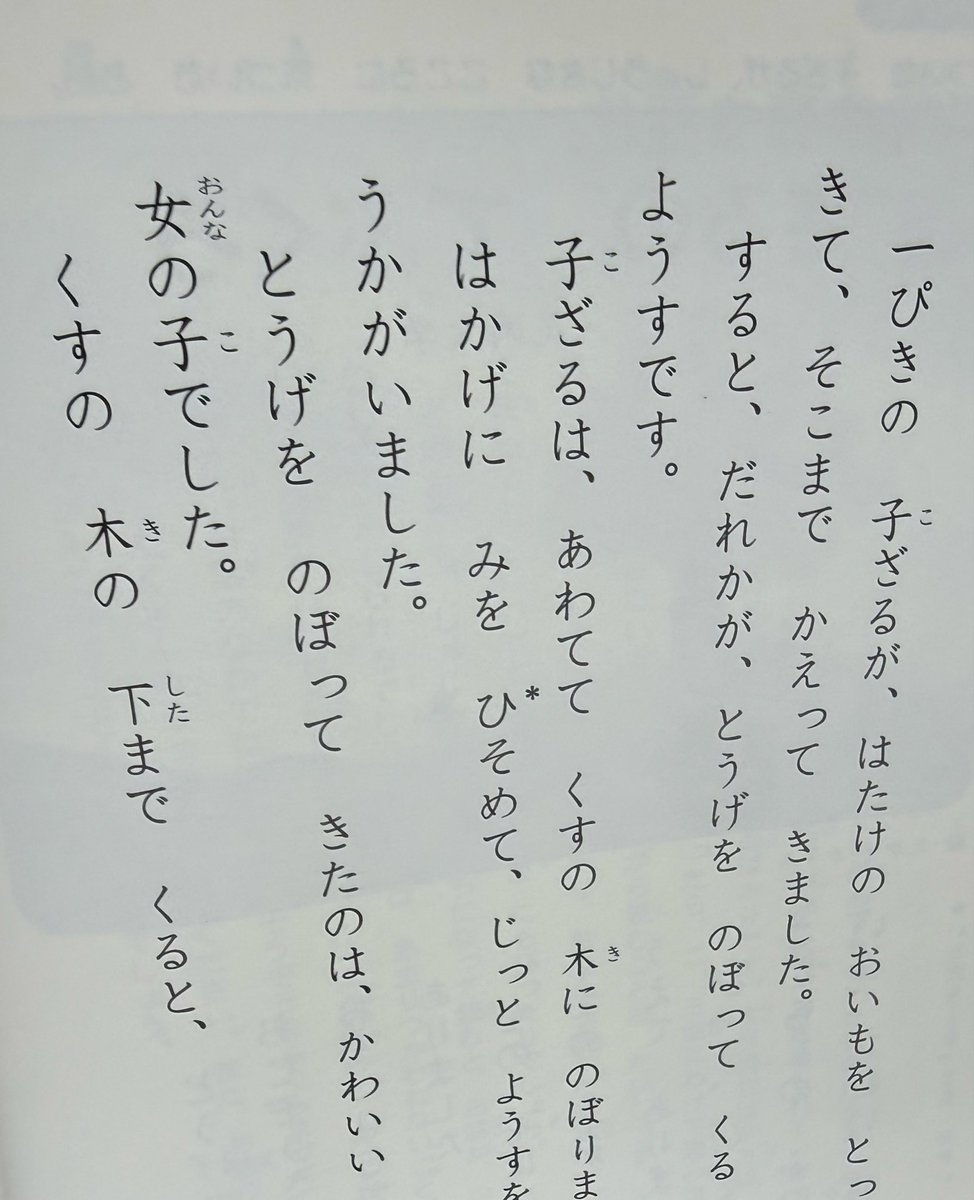 一ぴきの 子ざるが、はたけの おいもを とっ
きて、そこまで かえって きました。
すると、だれかが、とうげを のぼって くる
ようすです。
子ざるは、あわてて くすの 木に のぼりま
はかげに みを ひ*そめて、じっと ようすを
うかがいました。
とうげを のぼって きたのは、かわいい
女の子でした。
くすの 木の 下まで くると、